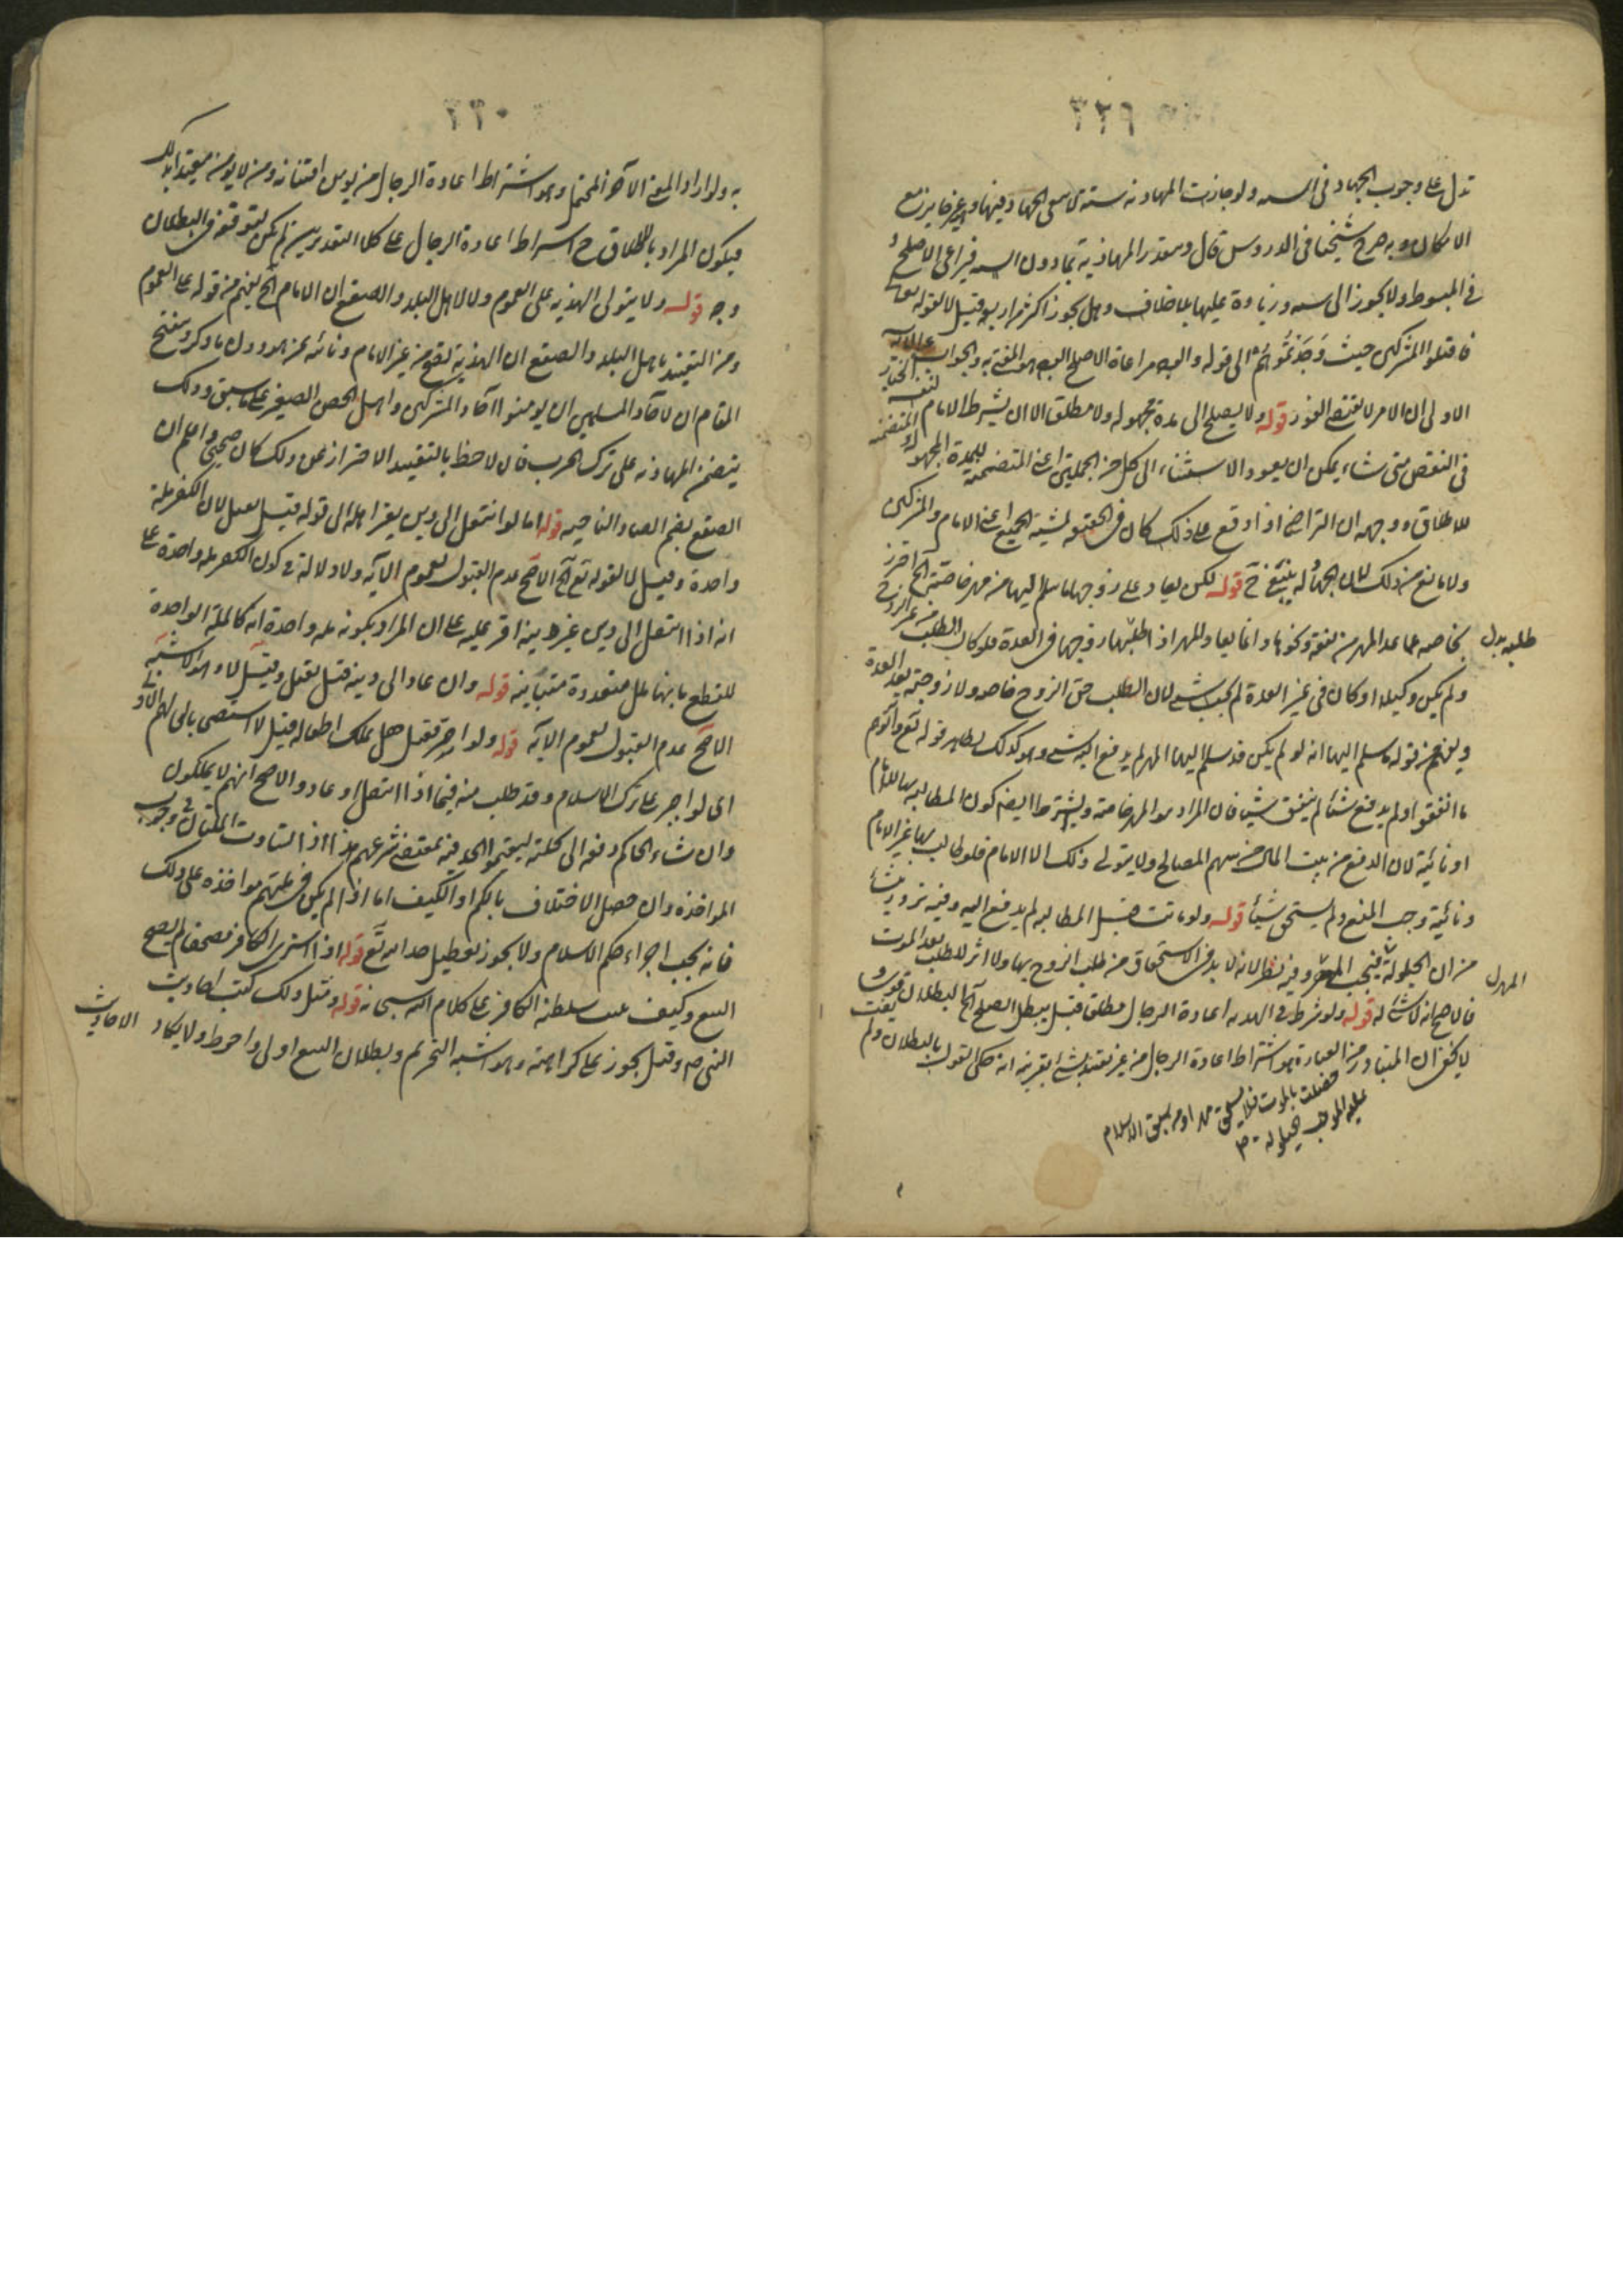 ٣٢٩
تدل على وجوب الجهاد فى السنه ولو جازت المهادنه سنة لانتفى الجهاد فيها وغيرها مع
الامكان وبه صرح شيخنا فى الدروس قال وتقدر المهادنة بما دون السنه فيراعى الاصلح و
فى المبسوط ولا يجوز الى سنه وزيادة عليها بلا خلاف وهل يجوز اكثر من اربعه قيل لا لقوله تع
فاقتلوا المشركين حيث وَجَدْتُمُوهُم الى قوله والوجه مراعاة الاصلح الوجه هو المفتى به والجواب عن الآية
الاولى ان الامر لا يقتضى الفور قوله ولا يصح الى مدة مجهولة ولا مطلقا الا ان يشترط الامام لنفسه الخيار
فى النقض متى شاء يمكن ان يعود الاستثناء الى كل من الجملتين اعنى المتضمنة للمدة المجهولة والمتضمنه
للاطلاق ووجهه ان التراضى اذا وقع على ذلك كان فى الحقيقة لمشية الجميع اعنى الامام والمشركين
ولا مانع من ذلك لان الجهالة ينتفى ح قوله لكن يعاد على زوجها ما سلم اليها من مهر خاصة الخ احترز
بخاصه عما عدا المهر من نفقة ونحوها وانما يعاد المهر اذا طلبها زوجها فى العدة فلو كان الطلب من غير الزوج
طلبه بدل
ولم يكن وكيلا او كان فى غير العدة لم يجب شى لان الطلب حق الزوج خاصه ولا زوجية بعد العدة
ويفهم من قوله ما سلم اليها انه لو لم يكن قد سلم اليها المهر لم يدفع اليه شى وهو كذلك لظاهر قوله تع وآتوهم
ما انفقوا ولم يدفع شيئا لم ينفق شيئا فان المراد هو المهر خاصة ويشترط ايضا كون المطالبه بها للامام
او نائبه لان الدفع من بيت المال من سهم المصالح ولا يتولى ذلك الا الامام فلو طالب بها غير الامام
ونائبه وجب المنع ولم يستحق شيئا قوله ولو ماتت قبل المطالبه لم يدفع اليه وفيه تردد
من ان الحيلولة فيجب المهر وفيه نظر لانه لا بد فى الاستحقاق من طلب الزوج بها ولا اثر للطلب بعد الموت
المهر بدل
فالاصح انه لا شئ له قوله ولو شرط فى الهدنه اعادة الرجال مطلقا قيل يبطل الصلح الخ
لا يخفى ان المتبادر من العبارة هو اشتراط اعادة الرجال من غير تقييد بشئ بقرينه انه حكى القول بالبطلان ولم
٣٣٠
به ولو اراد المعنى الآخر المحتمل وهو اشتراط اعادة الرجال من يؤمن افتتانه ومن لا يؤمن
فيكون المراد بالاطلاق ح اشتراط اعادة الرجال على كلا التقديرين لم يكن لتوقفه فى البطلان
وجه قوله ولا يتولى الهدنه على العموم ولا لاهل البلد والصقع الا الامام الخ يفهم من قوله على العموم
ومن التقييد باهل البلد والصقع ان الهدنة تصح من غير الامام ونائبه عن هو دون ما ذكر وتنقيح
المقام ان لآحاد المسلمين ان يؤمنوا آحاد المشركين واهل الحصن الصغير على ما سبق وذلك
يتضمن المهادنه على ترك الحرب فان لاحظ بالتقييد الاحتراز عن ذلك كان صحيحا واعلم ان
الصقع بضم الصاد الناحيه قوله اما لو انتقل الى دين يقر اهله الى قوله قيل يقبل لان الكفر ملة
واحدة وقيل لا لقوله تع الخ الاصح عدم القبول لعموم الآيه ولا دلالة فى كون الكفر مله واحدة على
انه اذا انتقل الى دين غير دينه اقر عليه على ان المراد بكونه مله واحدة انه كالملة الواحدة
للقطع بانها ملل متعددة متباينه قوله وان عاد الى دينه قيل يقبل وقيل لا وهو الاشبه
الاصح عدم القبول لعموم الآيه قوله ولو اصر فقتل هل يملك اطفاله قيل لا استصحابا لحالهم الاولى
اى لو اصر على ترك الاسلام وقد طلب منه فيما اذا انتقل او عاد والاصح انهم لا يملكون
وان شاء الحاكم دفعه الى ملته ليقيموا الحد فيه بمقتضى شرعهم هذا اذا تساوت الملتان فى وجوب
المؤاخذه وان حصل الاختلاف بالكم او الكيف اما اذا لم يكن فى ملتهم مؤاخذه على ذلك
فانه يجب اجراء حكم الاسلام ولا يجوز تعطيل حد الله تع قوله اذا اشترى الكافر مصحفا لم يصح
البيع وكيف يثبت سلطنة الكافر على كلام الله سبحانه قوله ومثل ذلك كتب احاديث
النبى ص وقيل يجوز على كراهية وهو اشبه التحريم وبطلان البيع اولى واحوط ولا يكاد
الاحاديث